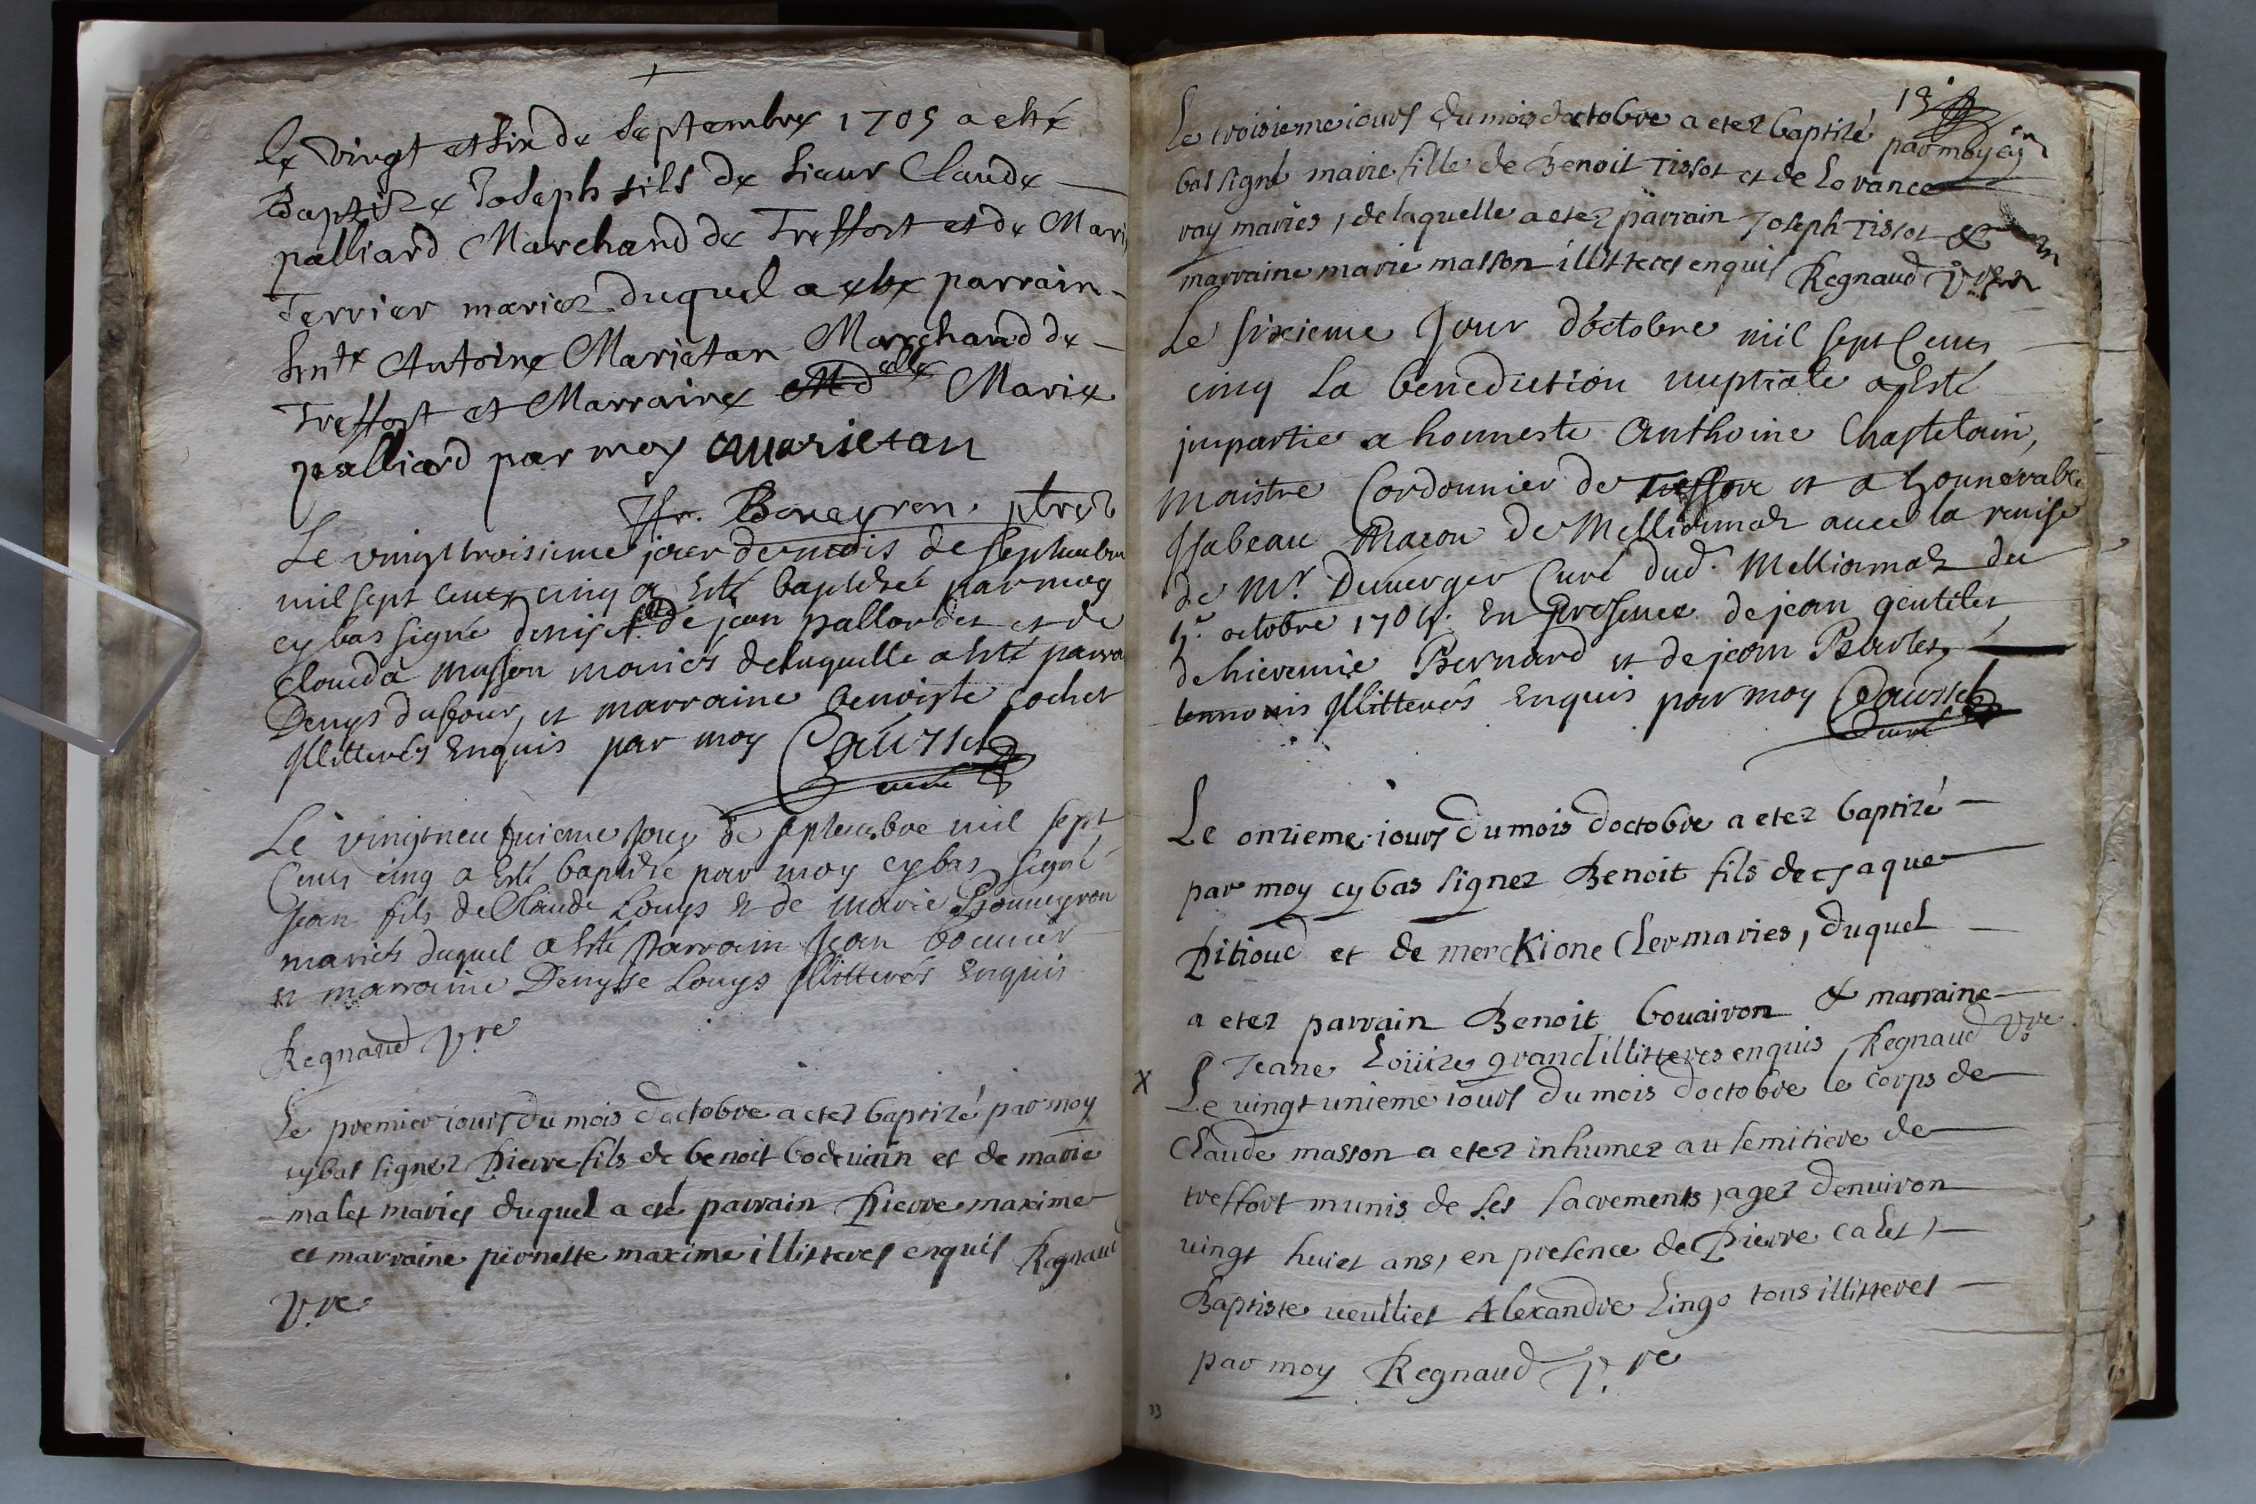 Le vingt et six de Septembre 1705 a esté
Baptize Joseph fils de sieur Claude
palliard Marchand de Treffort et de Mari
Terrier mariez duquel a este parrain
Antoine Marietan Marchand de
Treffort et Marraine Marie
palliard par moy Marietan
Boneyron
Le vingt troisieme jour du mois de septembre
mil sept cents cinq a esté baptisée par moy
cy bas signé denise fille de jean pallordet et de
Clauda masson mariés de laquelle a esté parra
Denys dufour, et marraine benoiste cochet
Illitterés Enquis par moy Caussel
curé
Le vingt neufuieme jour de septembre mil sept
Cents cinq a esté baptisé par moy cy bas signé
jean fils de Claude Louys et de marie Bonneyron
mariés duquel a esté parrain jean
et marraine Denyse Louys Illitterés Enquis
Regnaud p.re
Le premier iours du mois doctobre a etez baptizé par moy
cy bas signez Pierre fils de benoit boderain et de marie
malet maries duquel a esté parrain Pierre maxime
et marraine pernette maxime illitteres enquis Regnaud
p.re
13
Le troisieme iours du mois doctobre a etez baptizé par moy cy
bas signé marie fille de Benoit Tissot et de Lorance
ray maries, de laquelle a etez parrain Joseph Tissot &
marraine marie masson illitteres enquis Regnaud p.re
Le sixieme Jour d'octobre mil sept Cents
cinq La benediction nuptiale a Esté
impartie a honneste Anthoine Chastelain,
maistre Cordonnier de Treffort et a honnorable
Isabeau Macon de Mellionnaz avec la remise
de Mr. Duverger Curé dud. Mellionnaz du
5e. octobre 1705. En presence de jean gentilet
de hieremie Bernard et de jean Perlet,
temoins Illitterés Enquis par moy Caussel
curé
Le onzieme iours du mois doctobre a etez baptizé
par moy cy bas signez Benoit fils de jaque
Pitioud et de merckione Cler maries, duquel
a etez parrain Benoit bouairon & marraine
Jeane Louize grand illitteres enquis Regnaud p.re
X Le vingt unieme iours du mois doctobre le corps de
Claude masson a etez inhumez au semitiere de
treffort munis de ses sacrements, agez denviron
vingt huict ans, en presence de Pierre Calet,
Baptiste veulliet Alexandre Lingo tous illitteres
par moy Regnaud p.re
33